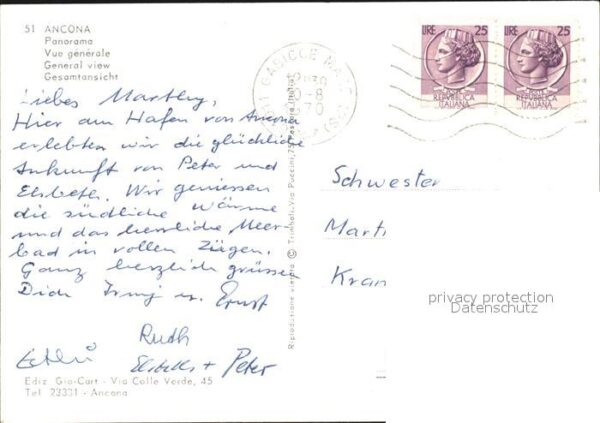 51 ANCONA
Panorama
Vue générale
General view
Gesamtansicht
Liebes Marthely,
Hier am Hafen von Ancona
erlebten wir die glückliche
Ankunft von Peter und
Elsbeth. Wir geniessen
die südliche Wärme
und das herrliche Meer-
bad in vollen Zügen.
Ganz herzlich grüssen
Dich Irmj u. Ernst
Ruth
Elsbeth + Peter
Ediz. Gio-Cart - Via Colle Verde, 45
Tel. 23331 - Ancona
Riproduzione vietata © Trimboli, Via Puccini, Pescara (Italia)
LIRE 25
POSTE
REPUBBLICA
ITALIANA
LIRE 25
POSTE
REPUBBLICA
ITALIANA
10-8
1970
Schwester
Marti
Kran
privacy protection
Datenschutz